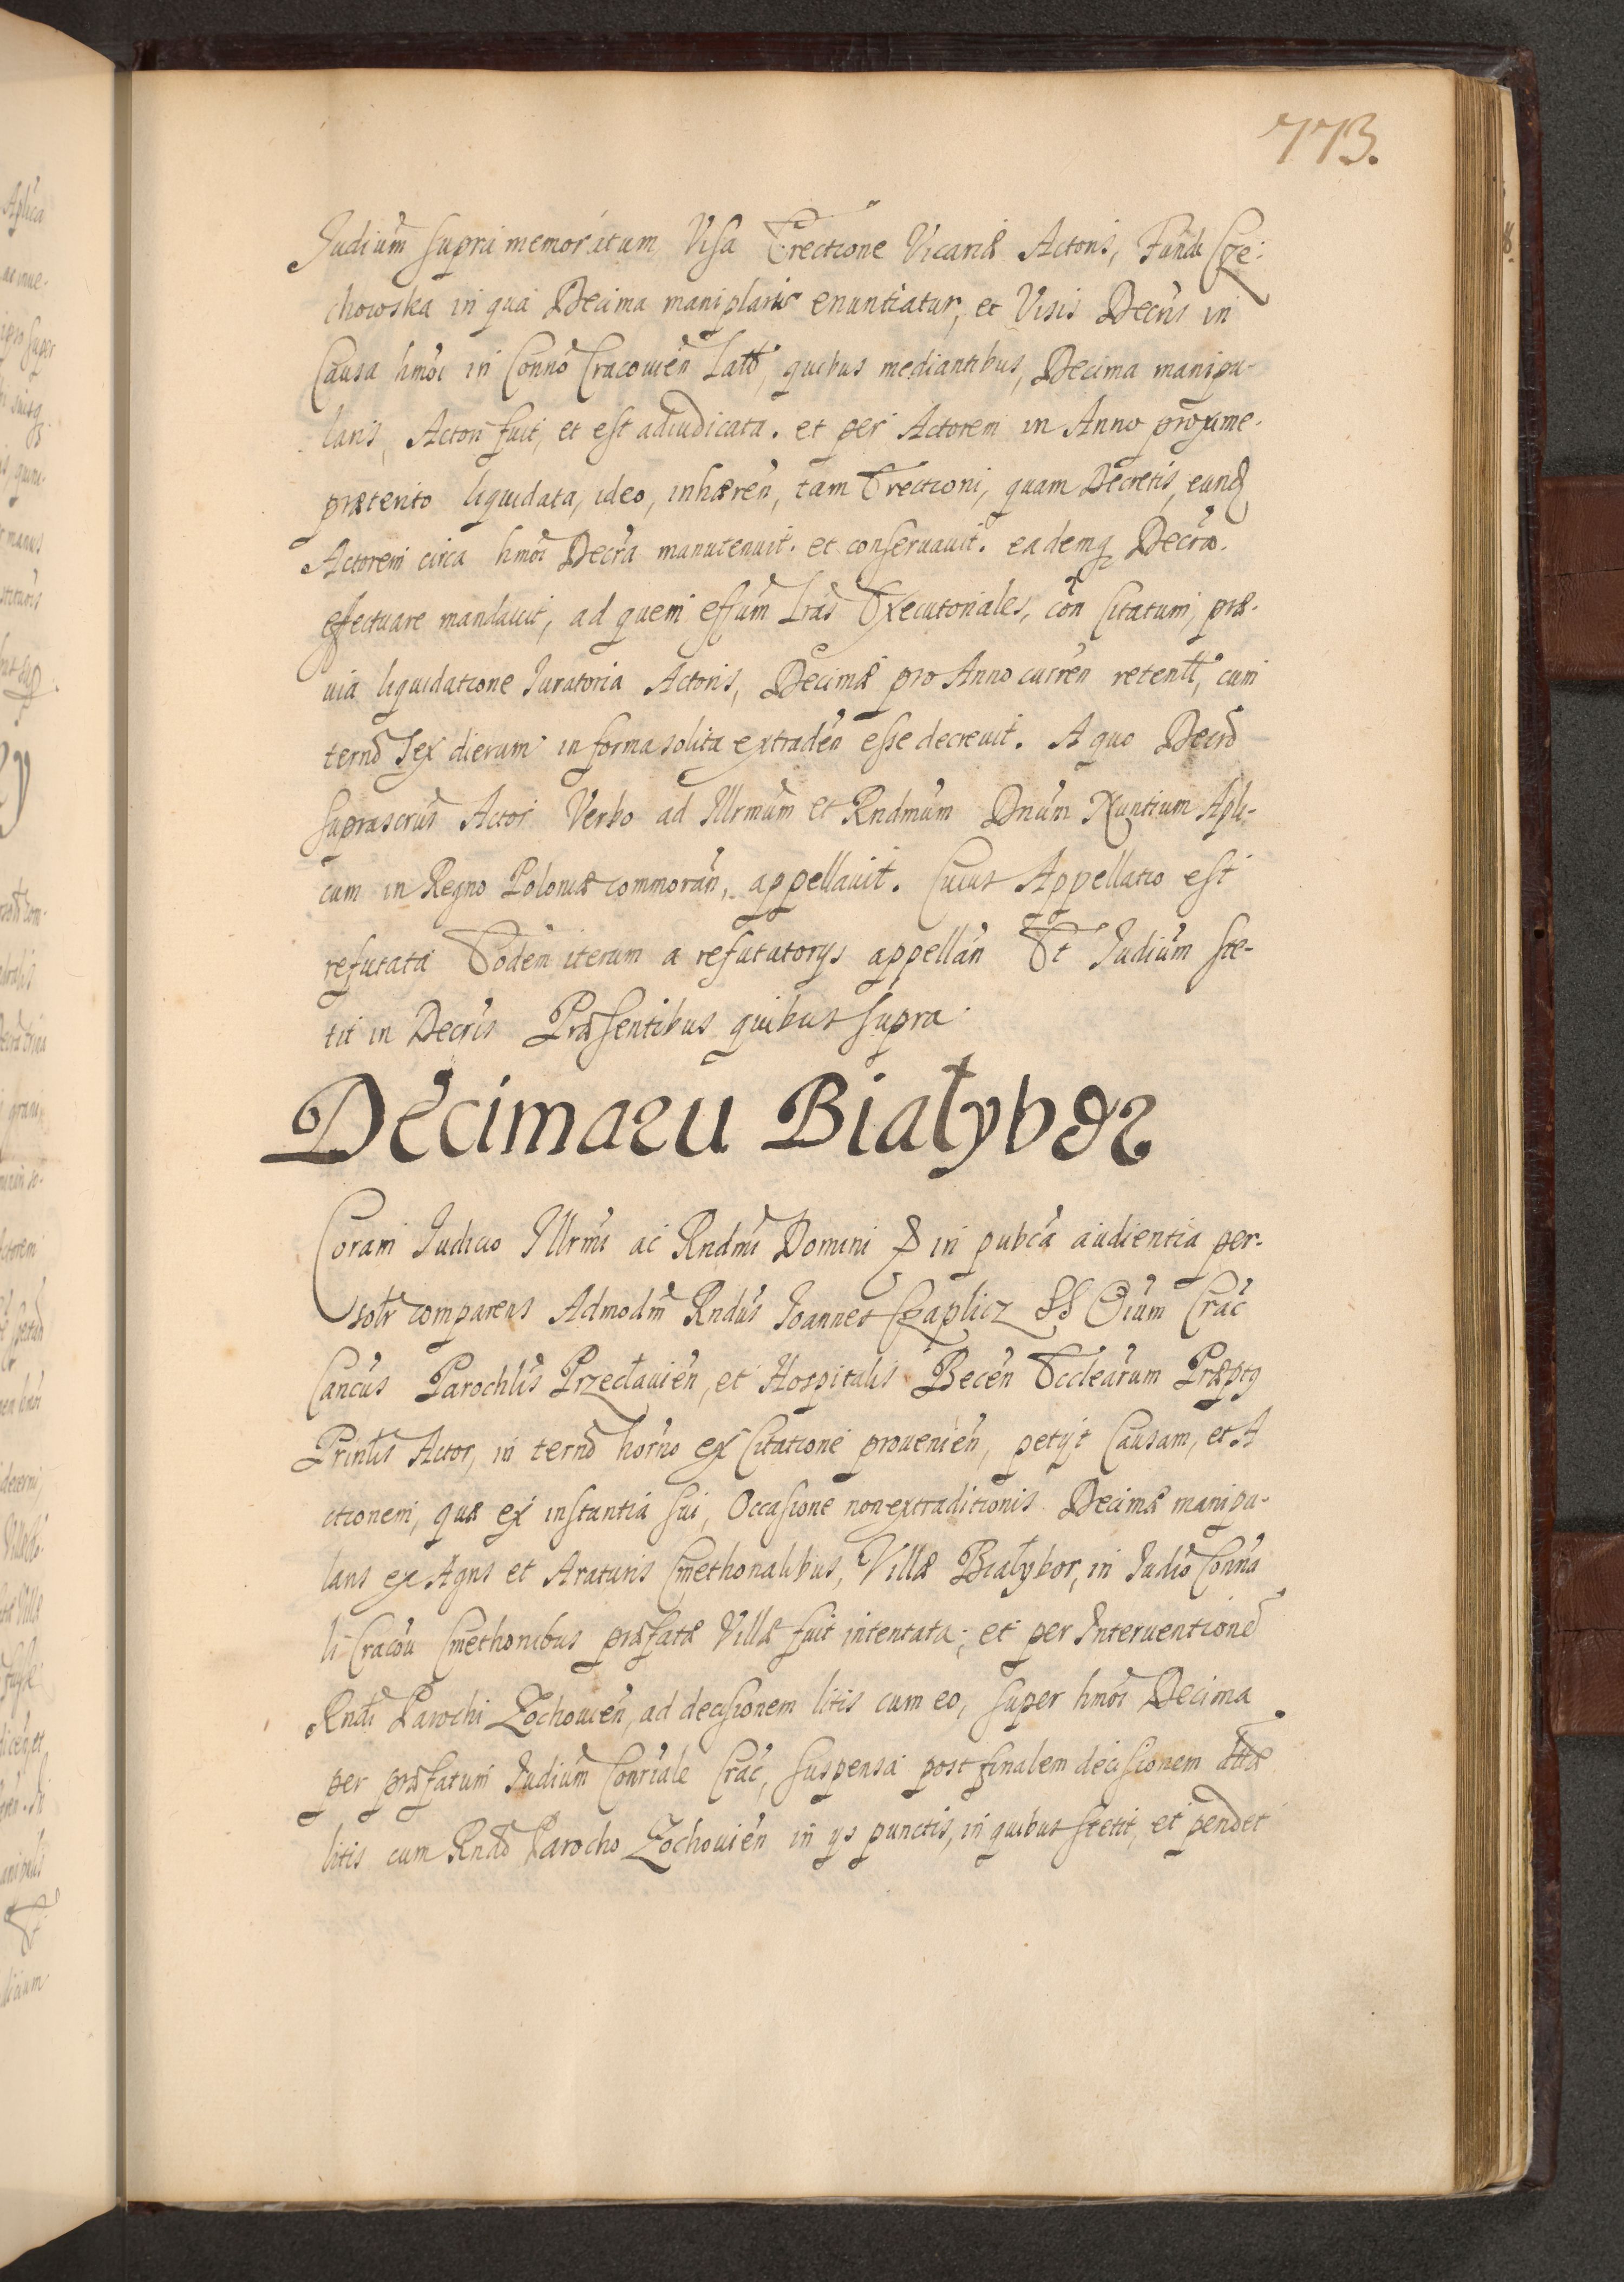 773.
Judium supra memoratum Visa Erectione Vicariæ Actoris, Fundi Cze-
chowska in qua Decima maniplaris enuntiatur, et Visis Decris in
Causa hmoi in Conno Cracouien Latis, quibus mediantibus, Decima manipu-
laris, Actori fuit, et est adiudicata. et per Actorem in Anno proxime.
præterito liquidata, ideo, inhæren, tam Erectioni, quam Decretis, eund
Actorem circa hmoi Decra manutenuit. et conseruauit. eademq Decra.
effectuare mandauit, ad quem effum Lras Executoriales, con Citatum, præ-
uia liquidatione Iuratoria Actoris, Decimæ pro Anno curren retent, cum
terno sex dierum in forma solita extraden esse decreuit. A quo Decro
suprascrus Actor Verbo ad Illrmum et Rndmum Dnum Nuntium Apli-
cum in Regno Poloniæ commoran, appellauit. Cuius Appellatio est
refutata Eodem iterum a refutatorys appellan Et Judium ste-
tit in Decris Præsentibus quibus supra.
Decimaru Białybor
Coram Judicio Illrmi ac Rndmi Domini in pubca audientia per-
solr comparens Admodm Rndus Joannes Czaplicz SS Oium Crac
Cancus Parochlis Przecłauien, et Hospitalis Becen Ecclearum Præptq
Prinlis Actor, in terno horno ex Citatione prouenien, petyt Causam, et A
ctionem, quæ ex instantia sui, Occasione non extraditionis Decimæ manipu-
laris ex Agris et Araturis Cmethonalibus, Villæ Białybor, in Judio Conna
li Cracou Cmethonibus præfatæ Villæ fuit intentata; et per Interuentione
Rndi Parochi Zochouien, ad decisionem litis cum eo, super hmoi Decima
per præfatum Judium Conriale Crac, suspensa post finalem decisionem dttæ
litis cum Rndo Parocho Zochouien in ys punctis, in quibus stetit, et pendet